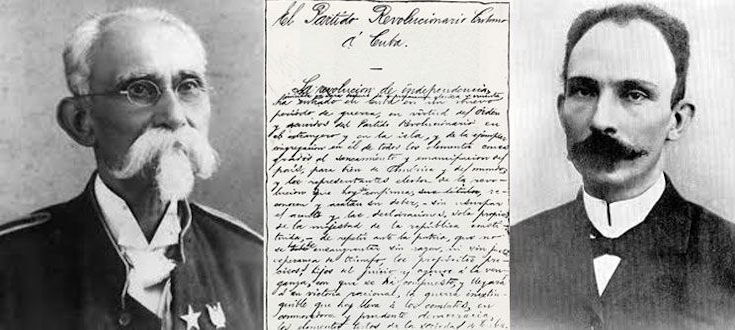 El Partido Revolucionario Cubano
á Cuba.
La revolución de independencia,
ha entrado en Cuba en un nuevo
período de guerra, en virtud del orden
y acuerdos del Partido Revolucionario en
el extranjero y en la isla, y de la ejemplar
congregación en él de todos los elementos consa-
grados al saneamiento y emancipación del
país, para bien de América y del mundo;
y los representantes electos de la revo-
lución que hoy se confirma, reco-
nocen y acatan su deber, - sin usurpar
el acento y las declaraciones, sólo propias
de la majestad de la república consti-
tuida, - de repetir ante la patria, que no
se ensangrentar sin razón, ni sin justa es-
peranza de triunfo, los propósitos pre-
cisos, hijos del juicio y ajenos á la ven-
ganza, con que se ha compuesto, y llegará
á su victoria racional, la guerra inextin-
guible que hoy lleva á los combates, en
conmovedora y prudente democracia,
los elementos todos de la sociedad de Cuba.